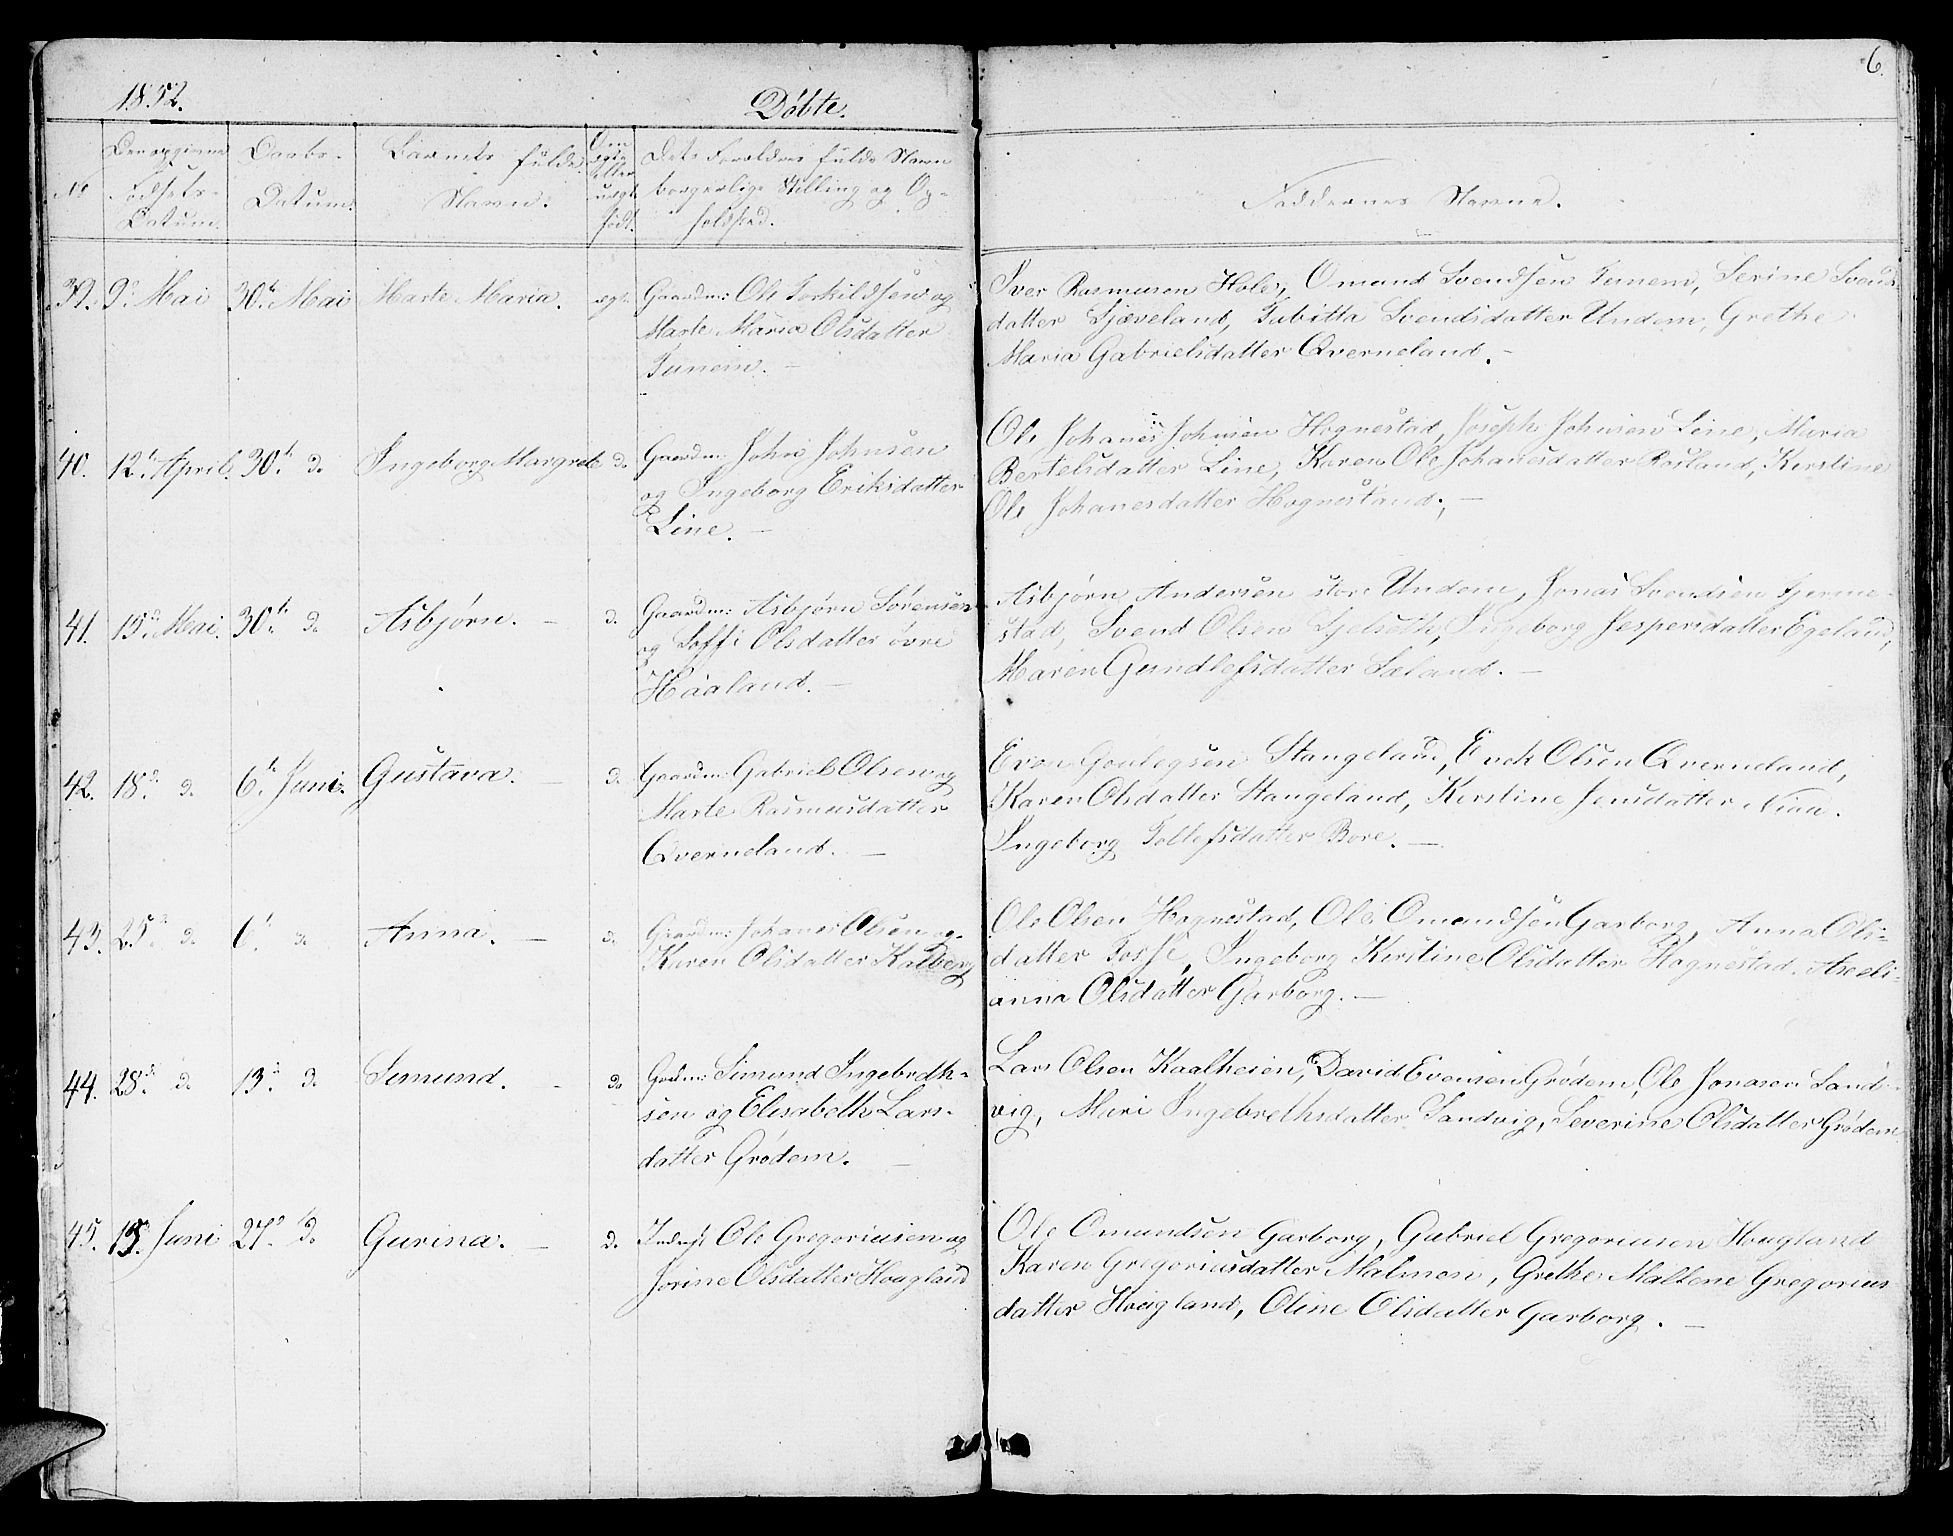 6.
1852.
Døbte.
No
Den opgivne
Fødsels-
Datum.
Daabs-
Datum.
Barnets fulde
Navn.
Om
ægte
eller
uægt.
født.
Dets Forældres fulde Navn
borgerlige Stilling og Op-
holdsted.
Faddernes Navne.
39. 9de Mai 30te Mai Marte Maria. ægt.
Gaardm: Ole Torkildsen og
Marte Maria Olsdatter
Tunem. -
Iver Rasmusen Hole, Omund Svendsen Tunem, Serine Svends
datter Sjæveland, Tabitta Svendsdatter Undem, Grethe
Maria Gabrielsdatter Qverneland. -
40. 12te April. 30te do Ingeborg Margrete do
Gaardm: John Johnsen
og Ingeborg Eriksdatter
Line. -
Ole Johanes Johnsen Hognestad, Joseph Johnsen Line, Maria
Bertelsdatter Line, Karen Ole Johanesdatter Rosland, Kirstine
Ole Johanesdatter Hognestand, -
41. 15de Mai. 30te do Asbjørn. - do
Gaardm: Asbjørn Sørensen
og Soffi Olsdatter øvre
Haaland. -
Asbjørn Andersen store Undem, Jonas Svendsen Hjerme-
stad, Svend Olsen Sjelseth, Ingeborg Jespersdatter Egeland,
Maren Gundlefsdatter Sæland. -
42. 18de do 6te Juni. Gustava. - do
Gaardm: Gabriel Olsen og
Marte Rasmusdatter
Qverneland. -
Even Goutegsen Stangeland, Enok Olsen Qverneland,
Karen Olsdatter Stangeland, Kirstine Jensdatter
Ingeborg Tollefsdatter Bore. -
43. 25de do 6te do Anna. - do
Gaardm: Johanes Olsen og
Karen Olsdatter Kalberg
Ole Olsen Hognestad, Ole Omundsen Garborg, Anna Ols-
datter Fosse, Ingeborg Kirstine Olsdatter Hognestad. Axeli-
anna Olsdatter Garborg. -
44. 28de do 13de do Simund. - do
Grdm: Simund Ingebreth-
sen og Elisabeth Lars-
datter Grødem. -
Lars Olsen Kaalheien, David Evensen Grødem, Ole Jonasen Sand-
vig, Mari Ingebrethsdatter Sandvig, Severine Olsdatter Grødem
45. 15 Juni 27de do Gurina. - do
Inderst Ole Gregoriusen og
Jorine Olsdatter Hougland
Ole Omundsen Garborg, Gabriel Gregoriusen Hougland
Karen Gregoriusdatter Malmen, Grethe Maltene Gregorius
datter Hougland, Oline Olsdatter Garborg. -